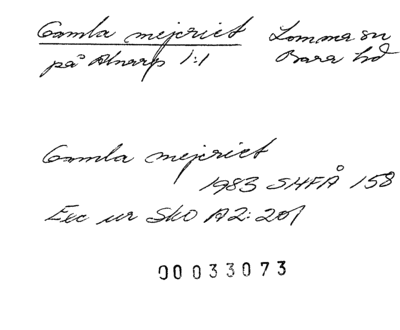 Gamla mejeriet Lomma sn
på Alnarp 1:1 Bara hd
Gamla mejeriet
1983 SHFÅ 158
Exc ur SkO A2: 201
00033073